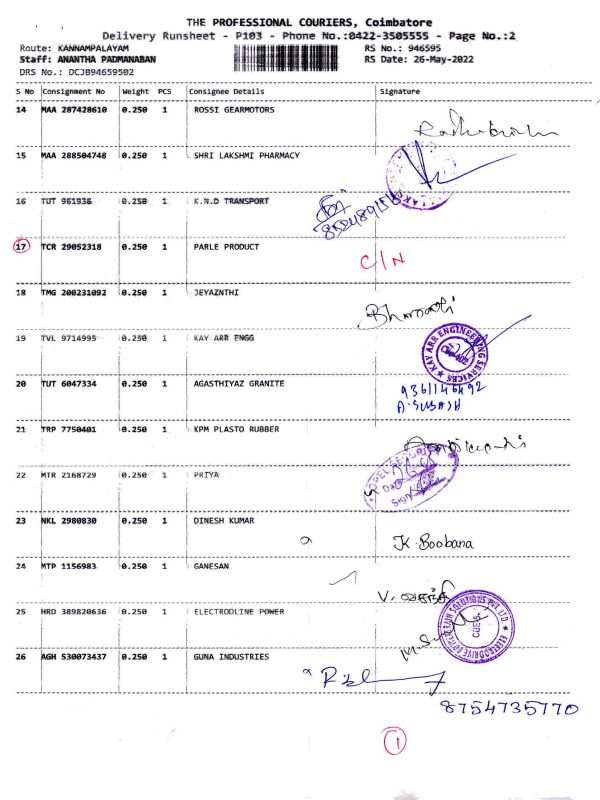 THE PROFESSIONAL COURIERS, Coimbatore
Delivery Runsheet - P103 - Phone No.:0422-3505555 - Page No.:2
Route: KANNAMPALAYAM RS No.: 946595
Staff: ANANTHA PADMANABAN RS Date: 26-May-2022
DRS No.: DCJB94659502
S No Consignment No Weight PCS Consignee Details Signature
14 MAA 287428610 0.250 1 ROSSI GEARMOTORS
15 MAA 288504748 0.250 1 SHRI LAKSHMI PHARMACY
16 TUT 961936 0.250 1 K.N.D TRANSPORT
17 TCR 29052318 0.250 1 PARLE PRODUCT
C/N
18 TMG 200231092 0.250 1 JEYAZNTHI
19 TVL 9714995 0.250 1 KAY ARR ENGG
KAY ARR ENGINEERING SERVICES
20 TUT 6047334 0.250 1 AGASTHIYAZ GRANITE
A.SUBASH
21 TRP 7750401 0.250 1 KPM PLASTO RUBBER
22 MTR 2168729 0.250 1 PRIYA
23 NKL 2980830 0.250 1 DINESH KUMAR
K.Boobana
24 MTP 1156983 0.250 1 GANESAN
25 HRD 389820636 0.250 1 ELECTRODLINE POWER
26 AGH 530073437 0.250 1 GUNA INDUSTRIES
8754735770
1